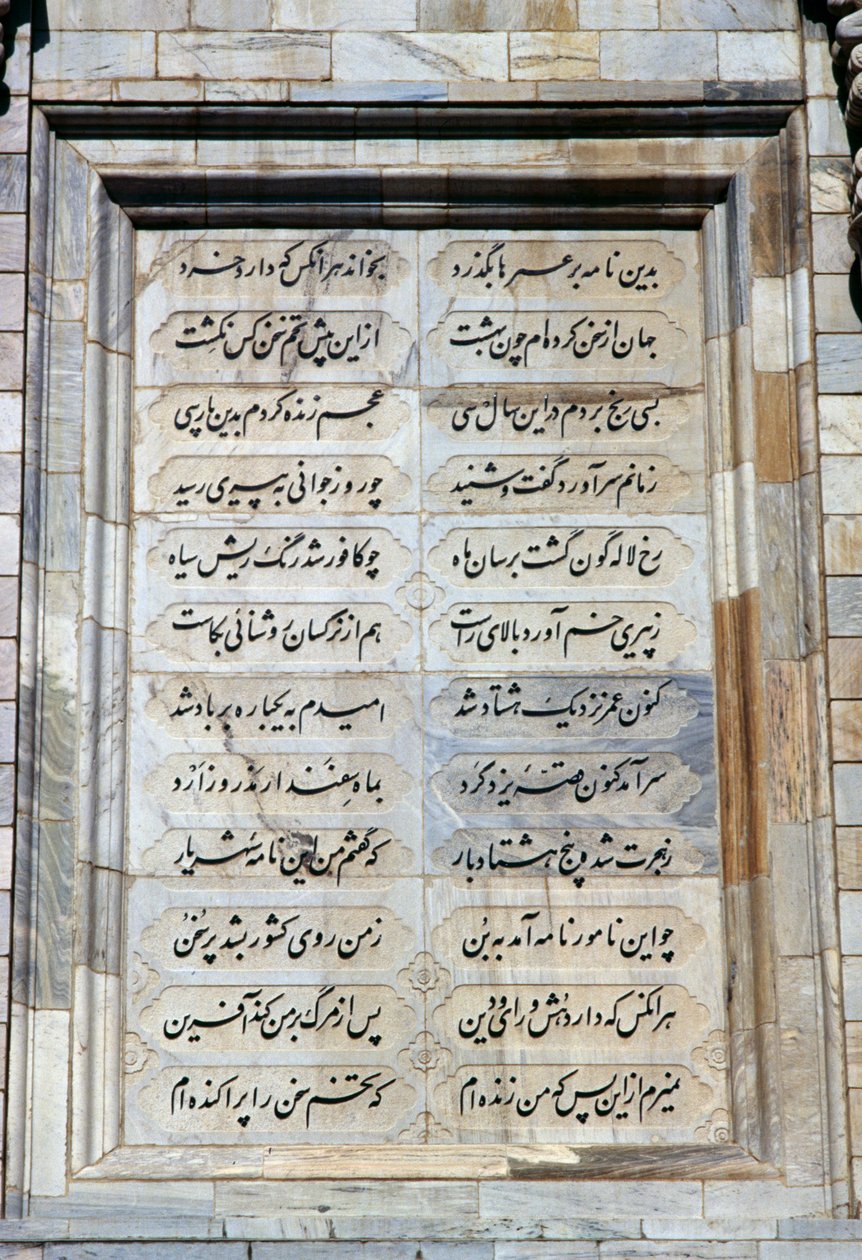 بدین نامه بر عمرها بگذرد بخواند هرآنکس که دارد خرد
جهان از سخن کرده ام چون بهشت از این پیش تخم سخن کس نکشت
بسی رنج بردم در این سال سی عجم زنده کردم بدین پارسی
زمانم سر آورد گفت و شنید چو روز جوانی به پیری رسید
رخ لاله گون گشت بر سان ماه چو کافور شد رنگ ریش سیاه
ز پیری خم آورد بالای راست هم از نرگسان روشنائی بکاست
کنون عمر نزدیک هشتاد شد امیدم به یکباره بر باد شد
سر آمد کنون قصّهٔ یزدگرد بماه سفندارمذ روز اَرد
ز هجرت شده پنج هشتاد بار که گفتم من این نامهٔ شهریار
چو این نامور نامه آمد به بُن ز من روی کشور بشد پر سُخُن
هرآنکس که دارد هُش و رای و دین پس از مرگ بر من کند آفرین
نمیرم از این پس که من زنده ام که تخم سخن را پراکنده ام